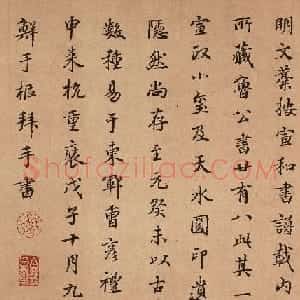 明文藁按宣和書譜載內
所藏魯公書廿有八此其一
宣政小璽及天水圓印遺
隱然尚存至元癸未以古
數種易于東鄆曹彥禮
申來杭重裝戊子十月九
鮮于樞拜手書
Shufaziliao.com